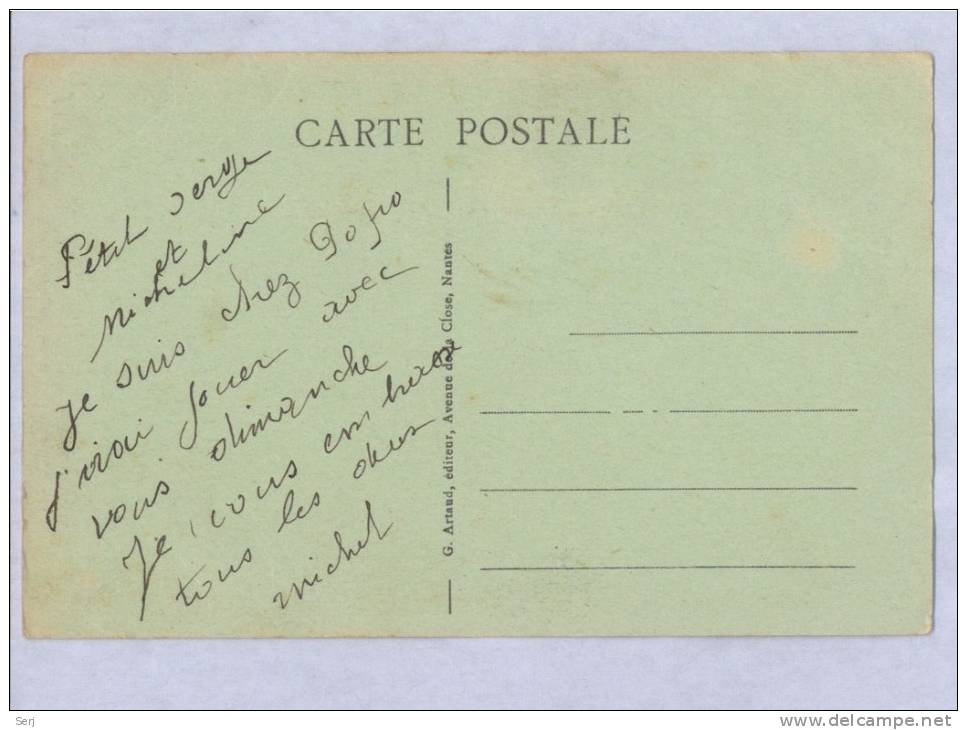 CARTE POSTALE
Petit Serge
et
Micheline
je suis chez
j'irai jouer avec
vous dimanche
Je vous embrasse
tous les deux
michel
G. Artaud, éditeur, Avenue de la Close, Nantes
Serj
www.delcampe.net